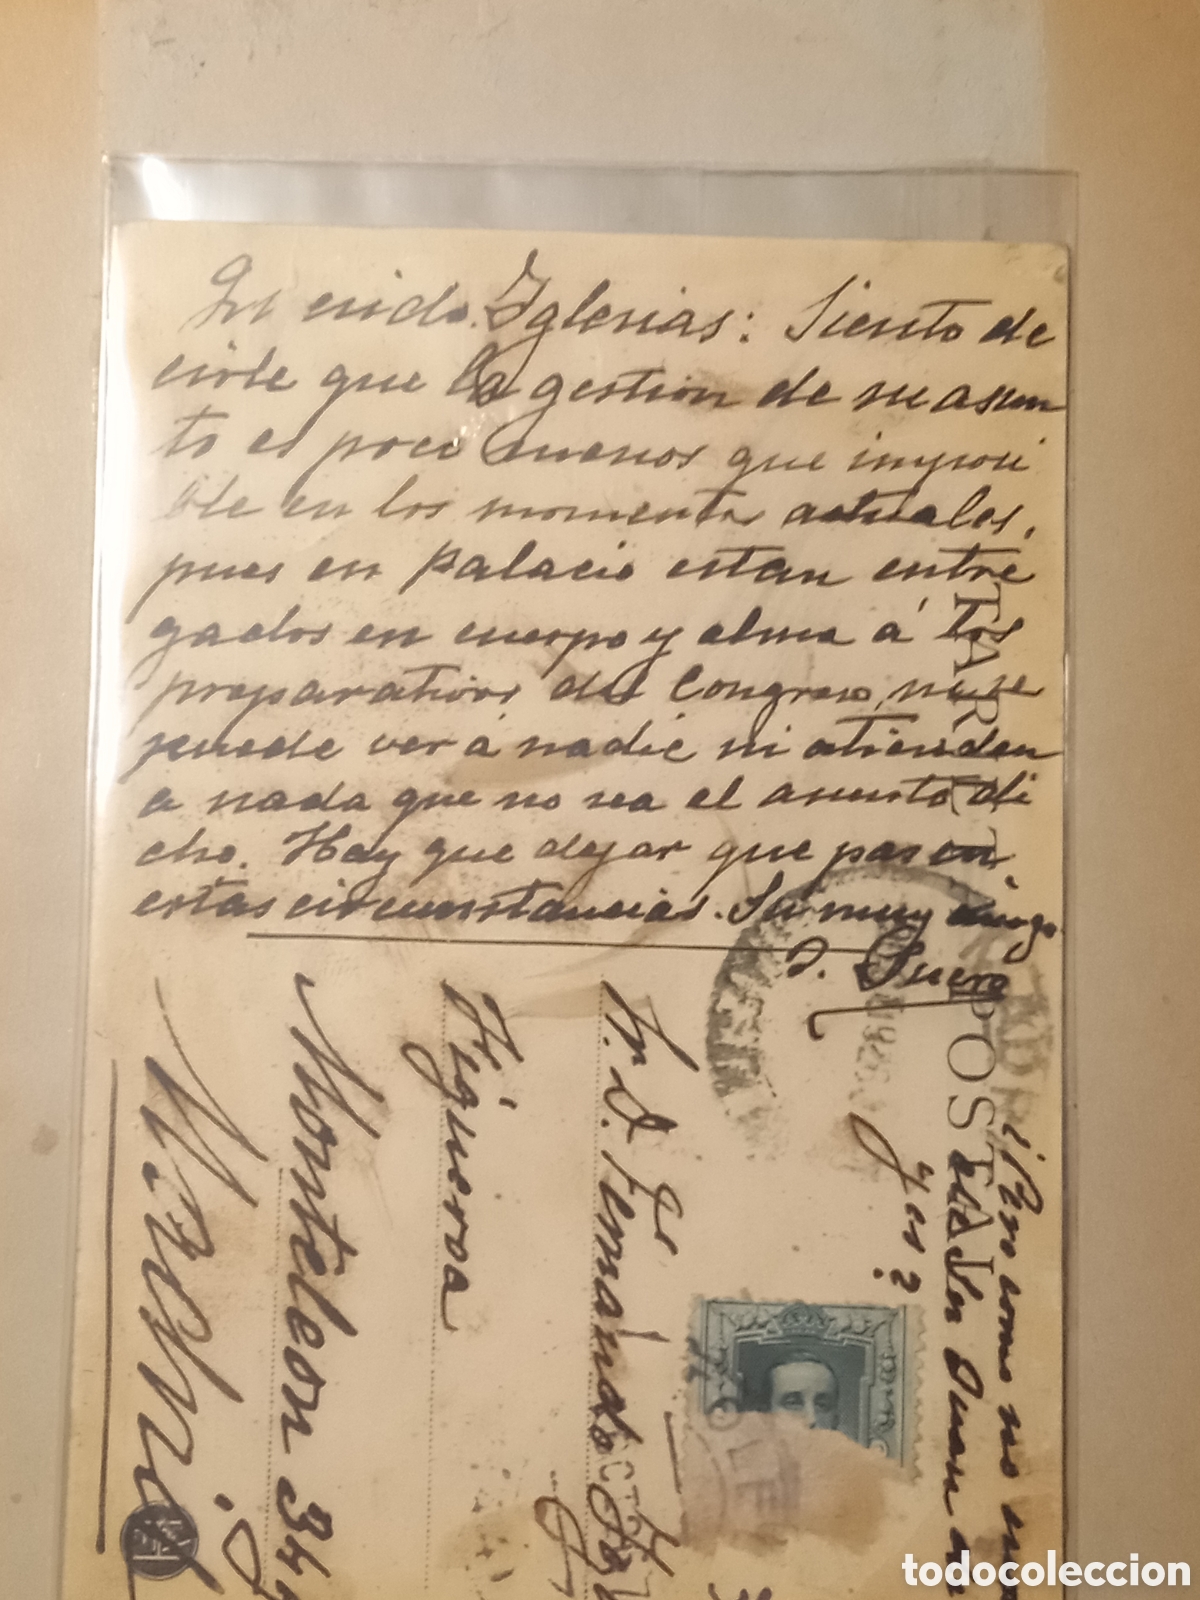 Querido Iglesias: Siento de
cirle que la gestión de su asun
to es poco menos que imposi
ble en los momentos actuales,
pues en palacio estan entre
gados en cuerpo y alma á los
preparativos del Congreso, no se
puede ver á nadie ni atienden
a nada que no sea el asunto di
cho. Hay que dejar que pasen
estas circunstancias. Su muy amigo
J.
TARJETA POSTAL
¡Pero como nos
San Juan
Sr. D. Fernando
Figueroa
Monteleon 34
Madrid
todocoleccion